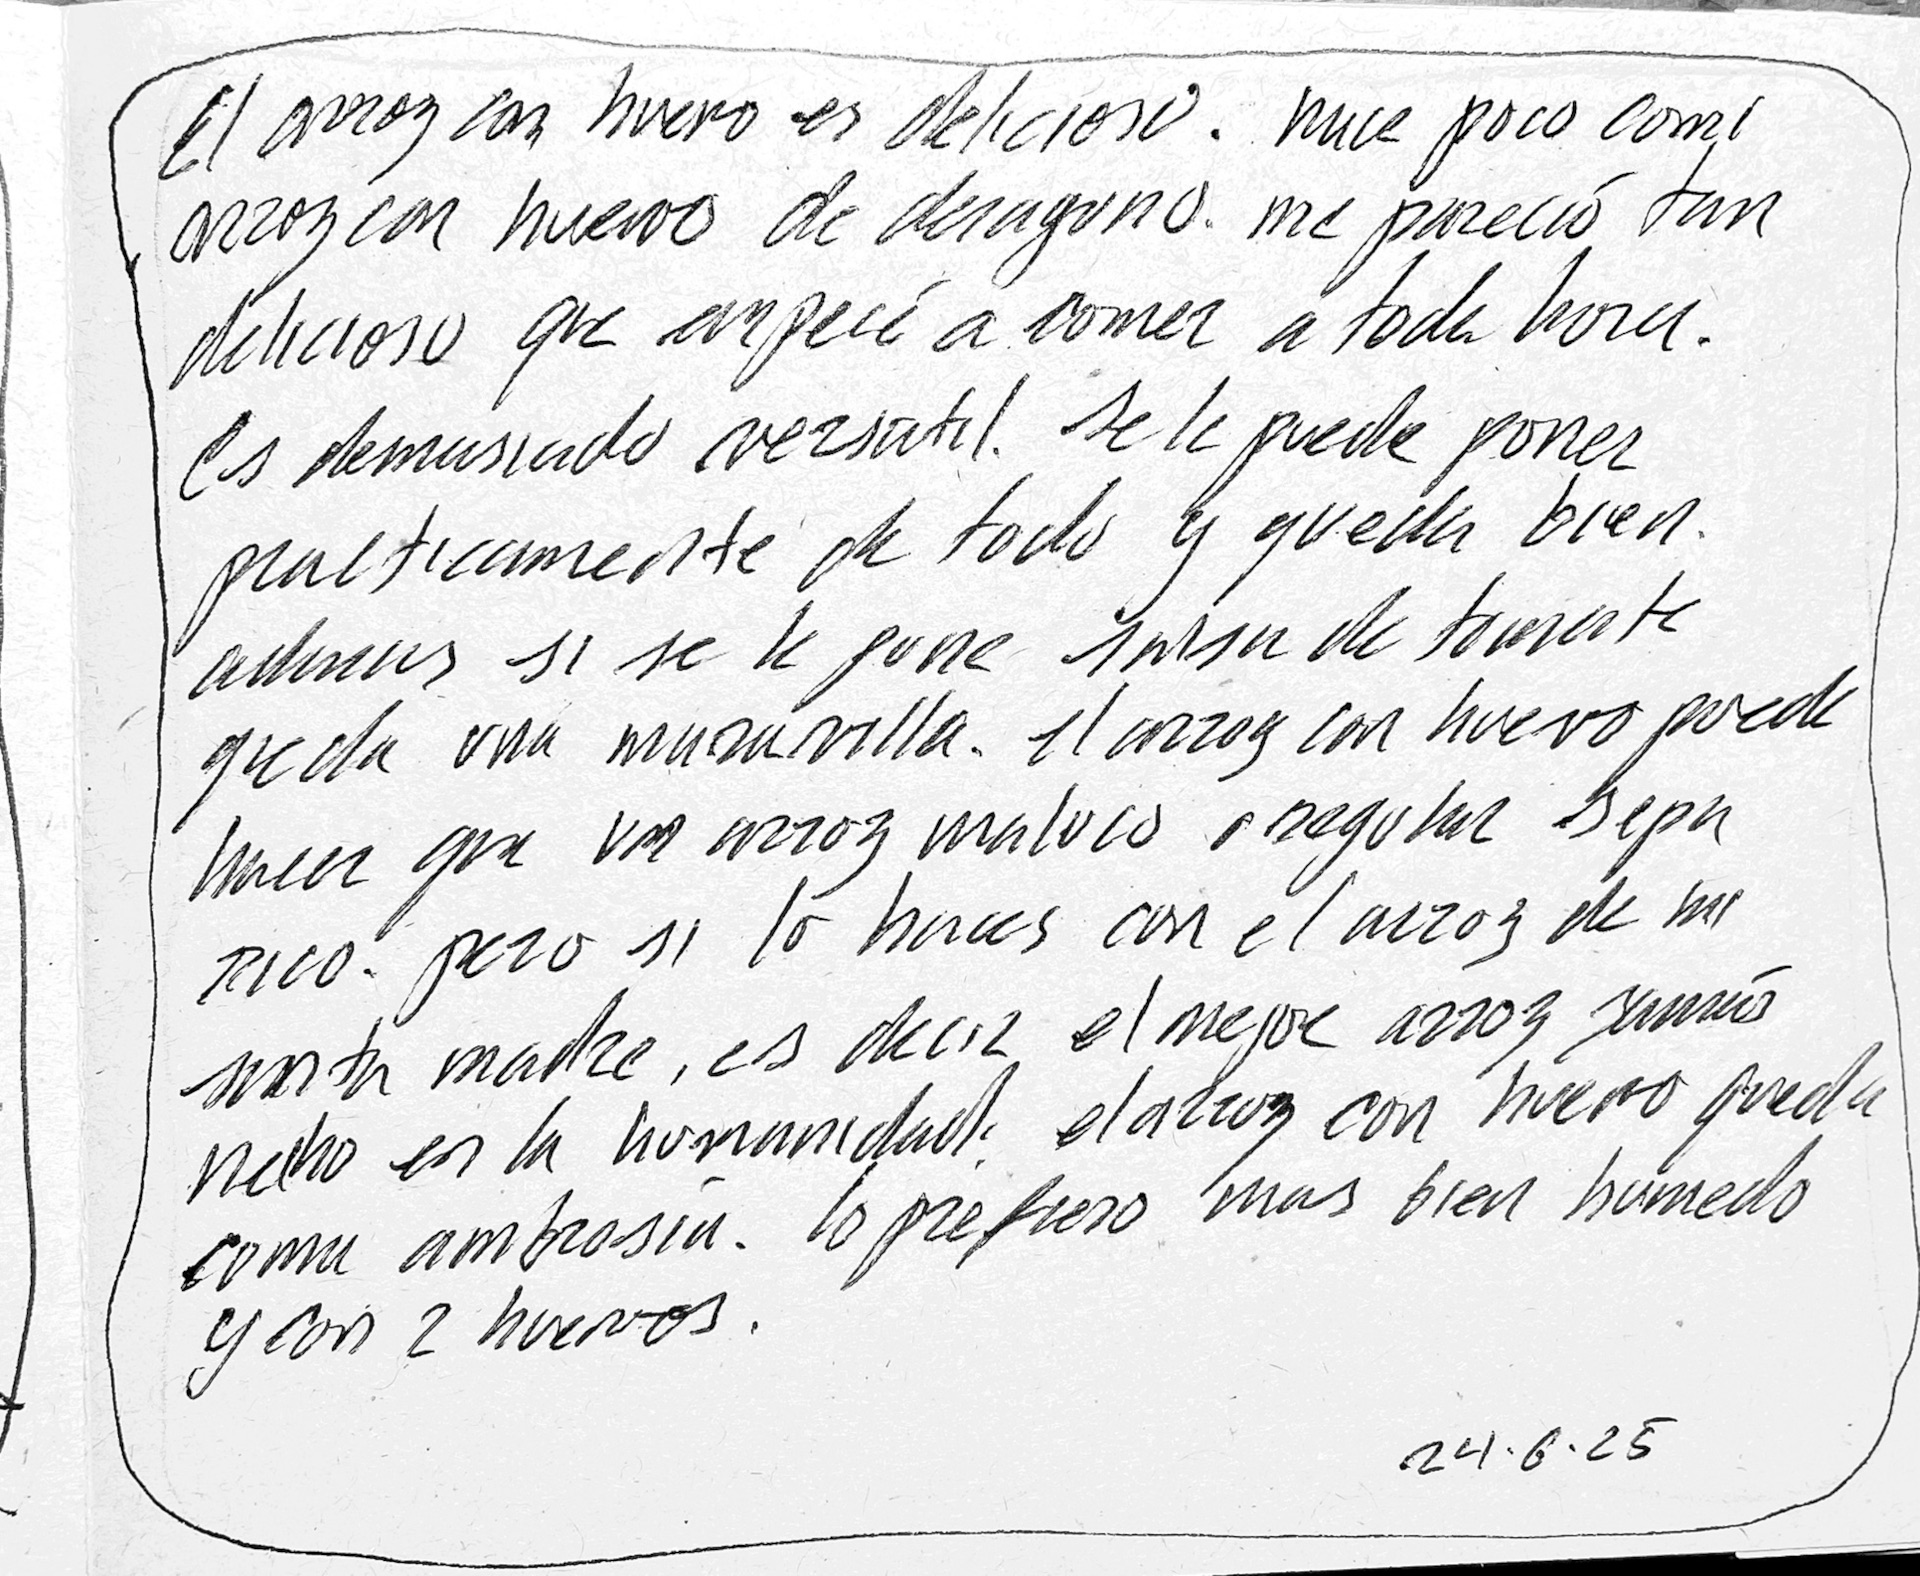 El arroz con huevo es delicioso. hace poco comí
arroz con huevo de desayuno. me pareció tan
delicioso que empecé a comer a toda hora.
Es demasiado versatil. Se le puede poner
practicamente de todo y queda bien.
ademas si se le pone salsa de tomate
queda una maravilla. el arroz con huevo puede
hacer que un arroz maluco o regular sepa
rico. pero si lo haces con el arroz de mi
santa madre, es decir el mejor arroz jamás
hecho en la humanidad, el arroz con huevo queda
como ambrosía. lo prefiero mas bien húmedo
y con 2 huevos.
24.6.25